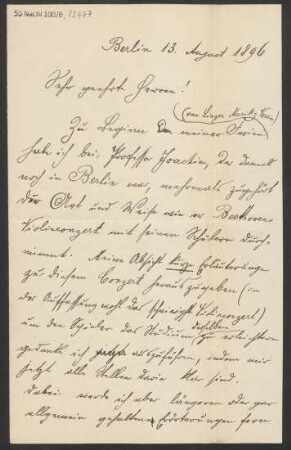 SG Nachl 100/B,
Berlin 13. August 1896
Sehr geehrte Herren!
Zu Beginn meiner Ferien
habe ich bei Professor Joachim, der damals
noch in Berlin war, mehrmals zugehört
der Art und Weise wie er Beethovens
Violinconzert mit seinen Schülern durch-
nimmt. Meine Absicht kurze Erläuterungen
zu diesem Conzert herauszugeben (in
der Auffassung wohl das schwierigste Violinconzert)
um den Spieler das Studium desselben zu erleichtern
gedenke ich jetzt auszuführen, indem mir
jetzt alle Stellen darin klar sind.
Dabei werde ich aber längeren oder gar
allgemein gehaltenen Erörterungen fern